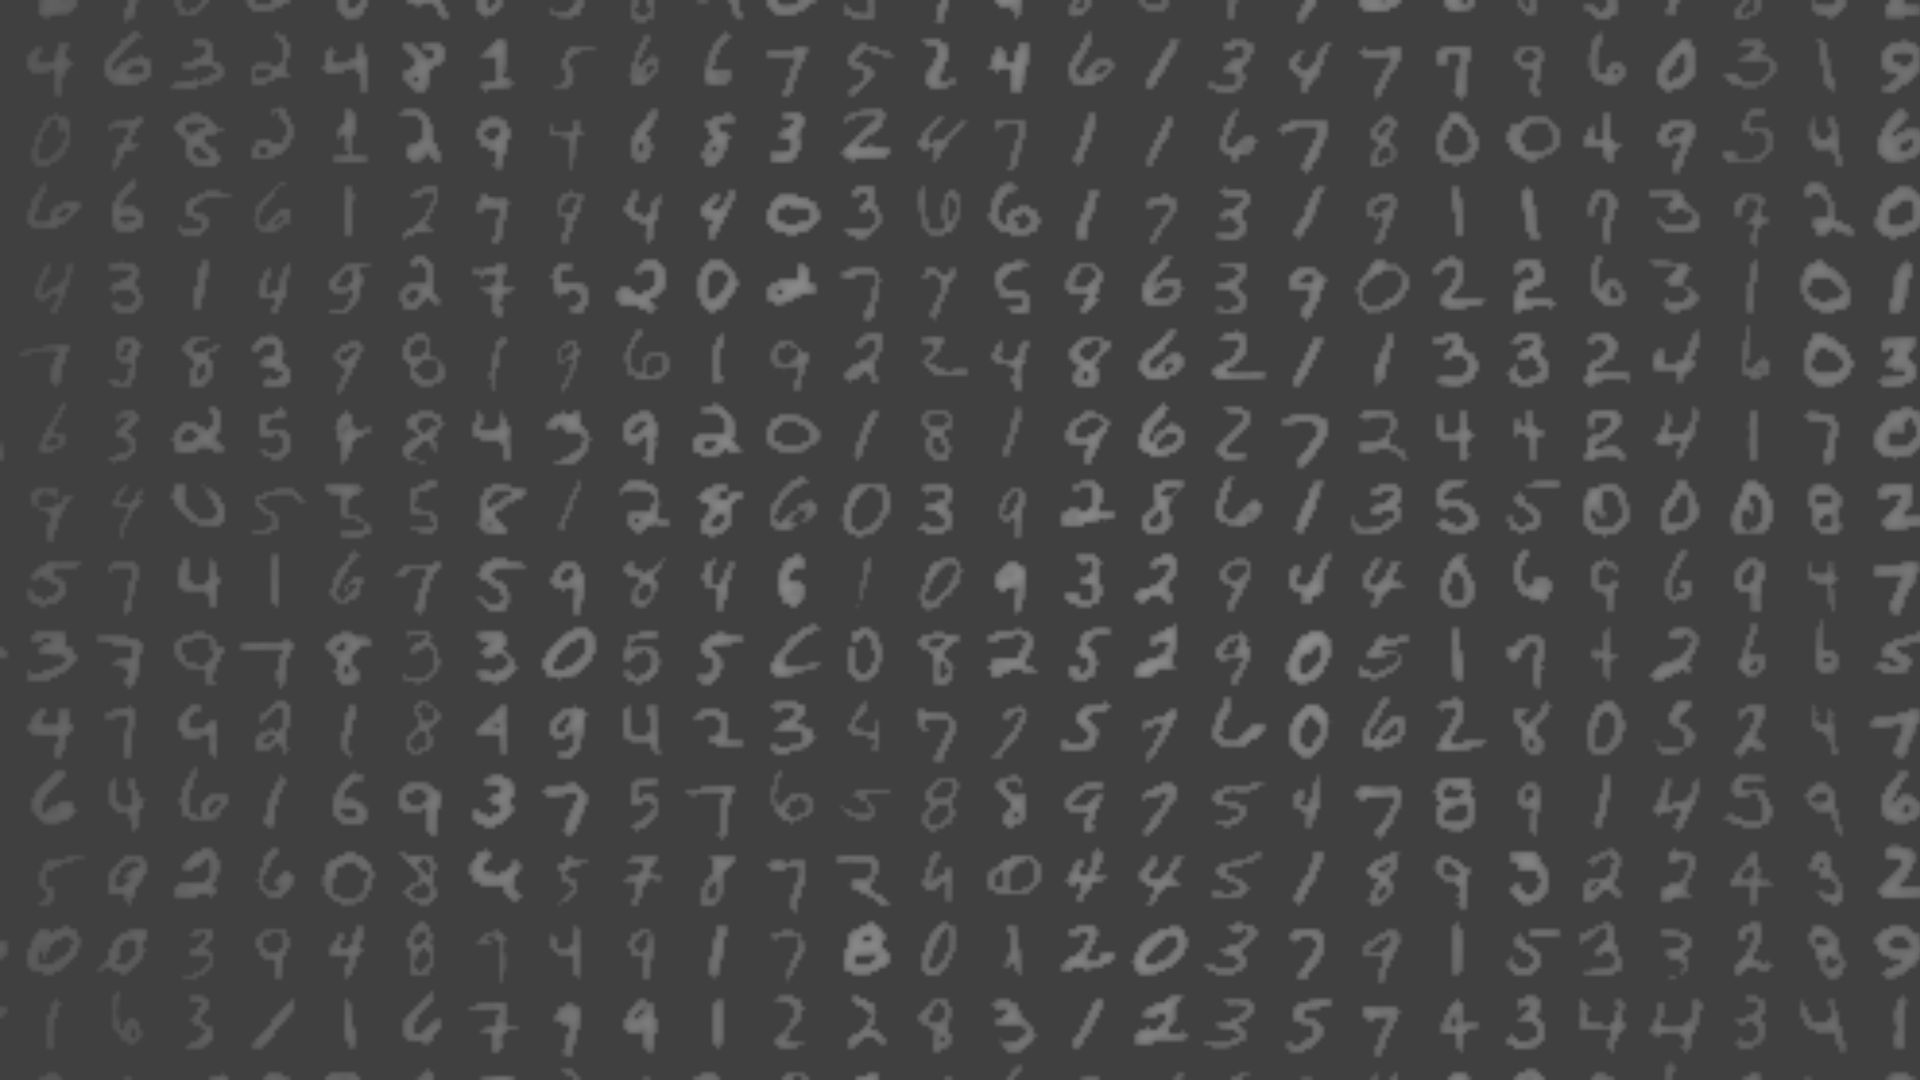 4 6 3 2 4 8 1 5 6 6 7 5 2 4 6 1 3 4 7 7 9 6 0 3 1 9
0 7 8 2 1 2 9 4 6 8 3 2 4 7 1 1 6 7 8 0 0 4 9 5 4 6
6 6 5 6 1 2 7 9 4 4 0 3 6 1 7 3 1 9 1 1 9 3 9 2 0
4 3 1 4 9 2 7 5 2 0 7 7 5 9 6 3 9 0 2 2 6 3 1 0 1
7 9 8 3 9 8 1 9 6 1 9 2 2 4 8 6 2 1 1 3 3 2 4 6 0 3
6 3 2 5 8 4 3 9 2 0 1 8 1 9 6 2 7 2 4 4 2 4 1 7 0
9 4 0 5 5 5 8 1 2 8 6 0 3 9 2 8 6 1 3 5 5 0 0 0 8 2
5 7 4 1 6 7 5 9 8 4 6 1 0 9 3 2 9 4 4 0 6 9 6 9 4 7
3 7 9 7 8 3 3 0 5 5 6 0 8 2 5 2 9 0 5 1 9 4 2 6 6 5
4 7 9 2 1 8 4 9 4 2 3 4 7 7 5 7 6 0 6 2 8 0 5 2 4 7
6 4 6 1 6 9 3 7 5 7 6 5 8 8 9 7 5 4 7 8 9 1 4 5 9 6
5 9 2 6 0 8 4 5 7 8 7 2 4 0 4 4 5 1 8 9 3 2 2 4 3 2
0 0 3 9 4 8 9 4 9 1 7 8 0 1 2 0 3 7 9 1 5 3 3 2 8 9
1 6 3 1 1 6 7 9 9 1 2 2 8 3 1 2 3 5 7 4 3 4 4 3 4 1